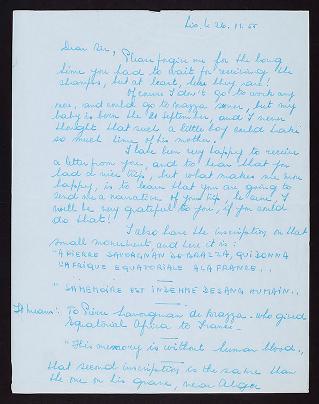 26. 11. 55
Dear Sir,
Please forgive me for the long
time you had to wait for receiving the
stamps, but at least, here they are!
Of course I don't go to work any
more, and could go to Brazza, but my
baby is born the 21 September, and I never
thought that such a little boy could take
so much time of his mother.
I have been very happy to receive
a letter from you, and to hear that you
had a nice trip, but what makes me more
happy, is to learn that you are going to
send me a narration of your trip. I
will be very grateful to you, if you could
do that!
I also have the inscription on that
small monument and here it is:
"A PIERRE SAVORGNAN DE BRAZZA, QUI DONNA
L'AFRIQUE EQUATORIALE A LA FRANCE..
"SA MEMOIRE EST INDEMNE DE SANG HUMAIN..
It means: To Pierre Savorgnan de Brazza - who gived
Equatorial Africa to France -
"His memory is without human blood..
that second inscription is the same than
the one on his grave, near Alger